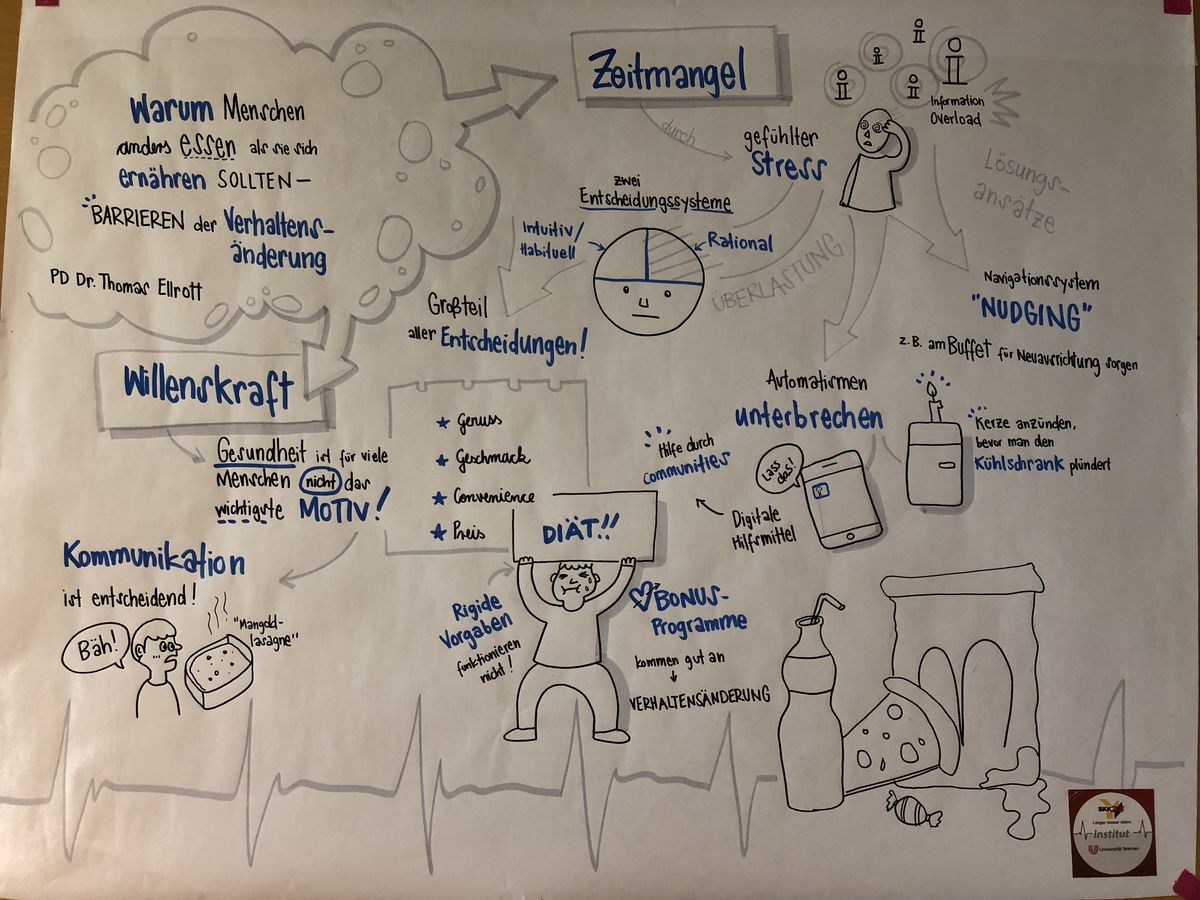 Warum Menschen
anders essen als sie sich
ernähren SOLLTEN –
BARRIEREN der Verhaltens-
änderung
PD Dr. Thomas Ellrott
Zeitmangel
durch
gefühlter
Stress
Information
Overload
zwei
Entscheidungssysteme
Intuitiv/
Habituell
Rational
Großteil
aller Entscheidungen!
ÜBERLASTUNG
Lösungs-
ansätze
Navigationssystem
"NUDGING"
z.B. am Buffet für Neuausrichtung sorgen
Automatismen
unterbrechen
Kerze anzünden,
bevor man den
Kühlschrank plündert
Lass
das!
Digitale
Hilfsmittel
Hilfe durch
Communities
Willenskraft
Gesundheit ist für viele
Menschen nicht das
wichtigste MOTIV!
Genuss
Geschmack
Convenience
Preis
DIÄT!!
Kommunikation
ist entscheidend!
Bäh!
"Mangold-
lasagne"
Rigide
Vorgaben
funktionieren
nicht!
BONUS-
Programme
kommen gut an
VERHALTENSÄNDERUNG
BKK
Länger besser leben.
Institut
Universität Bremen